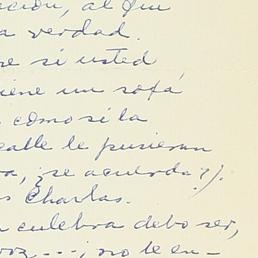 ción, al que
a verdad.
re si usted
iene un sofá
como si la
calle le pusieran
a, ¿se acuerda?).
s Charlas.
culebra debo ser,
voz---; no te en-